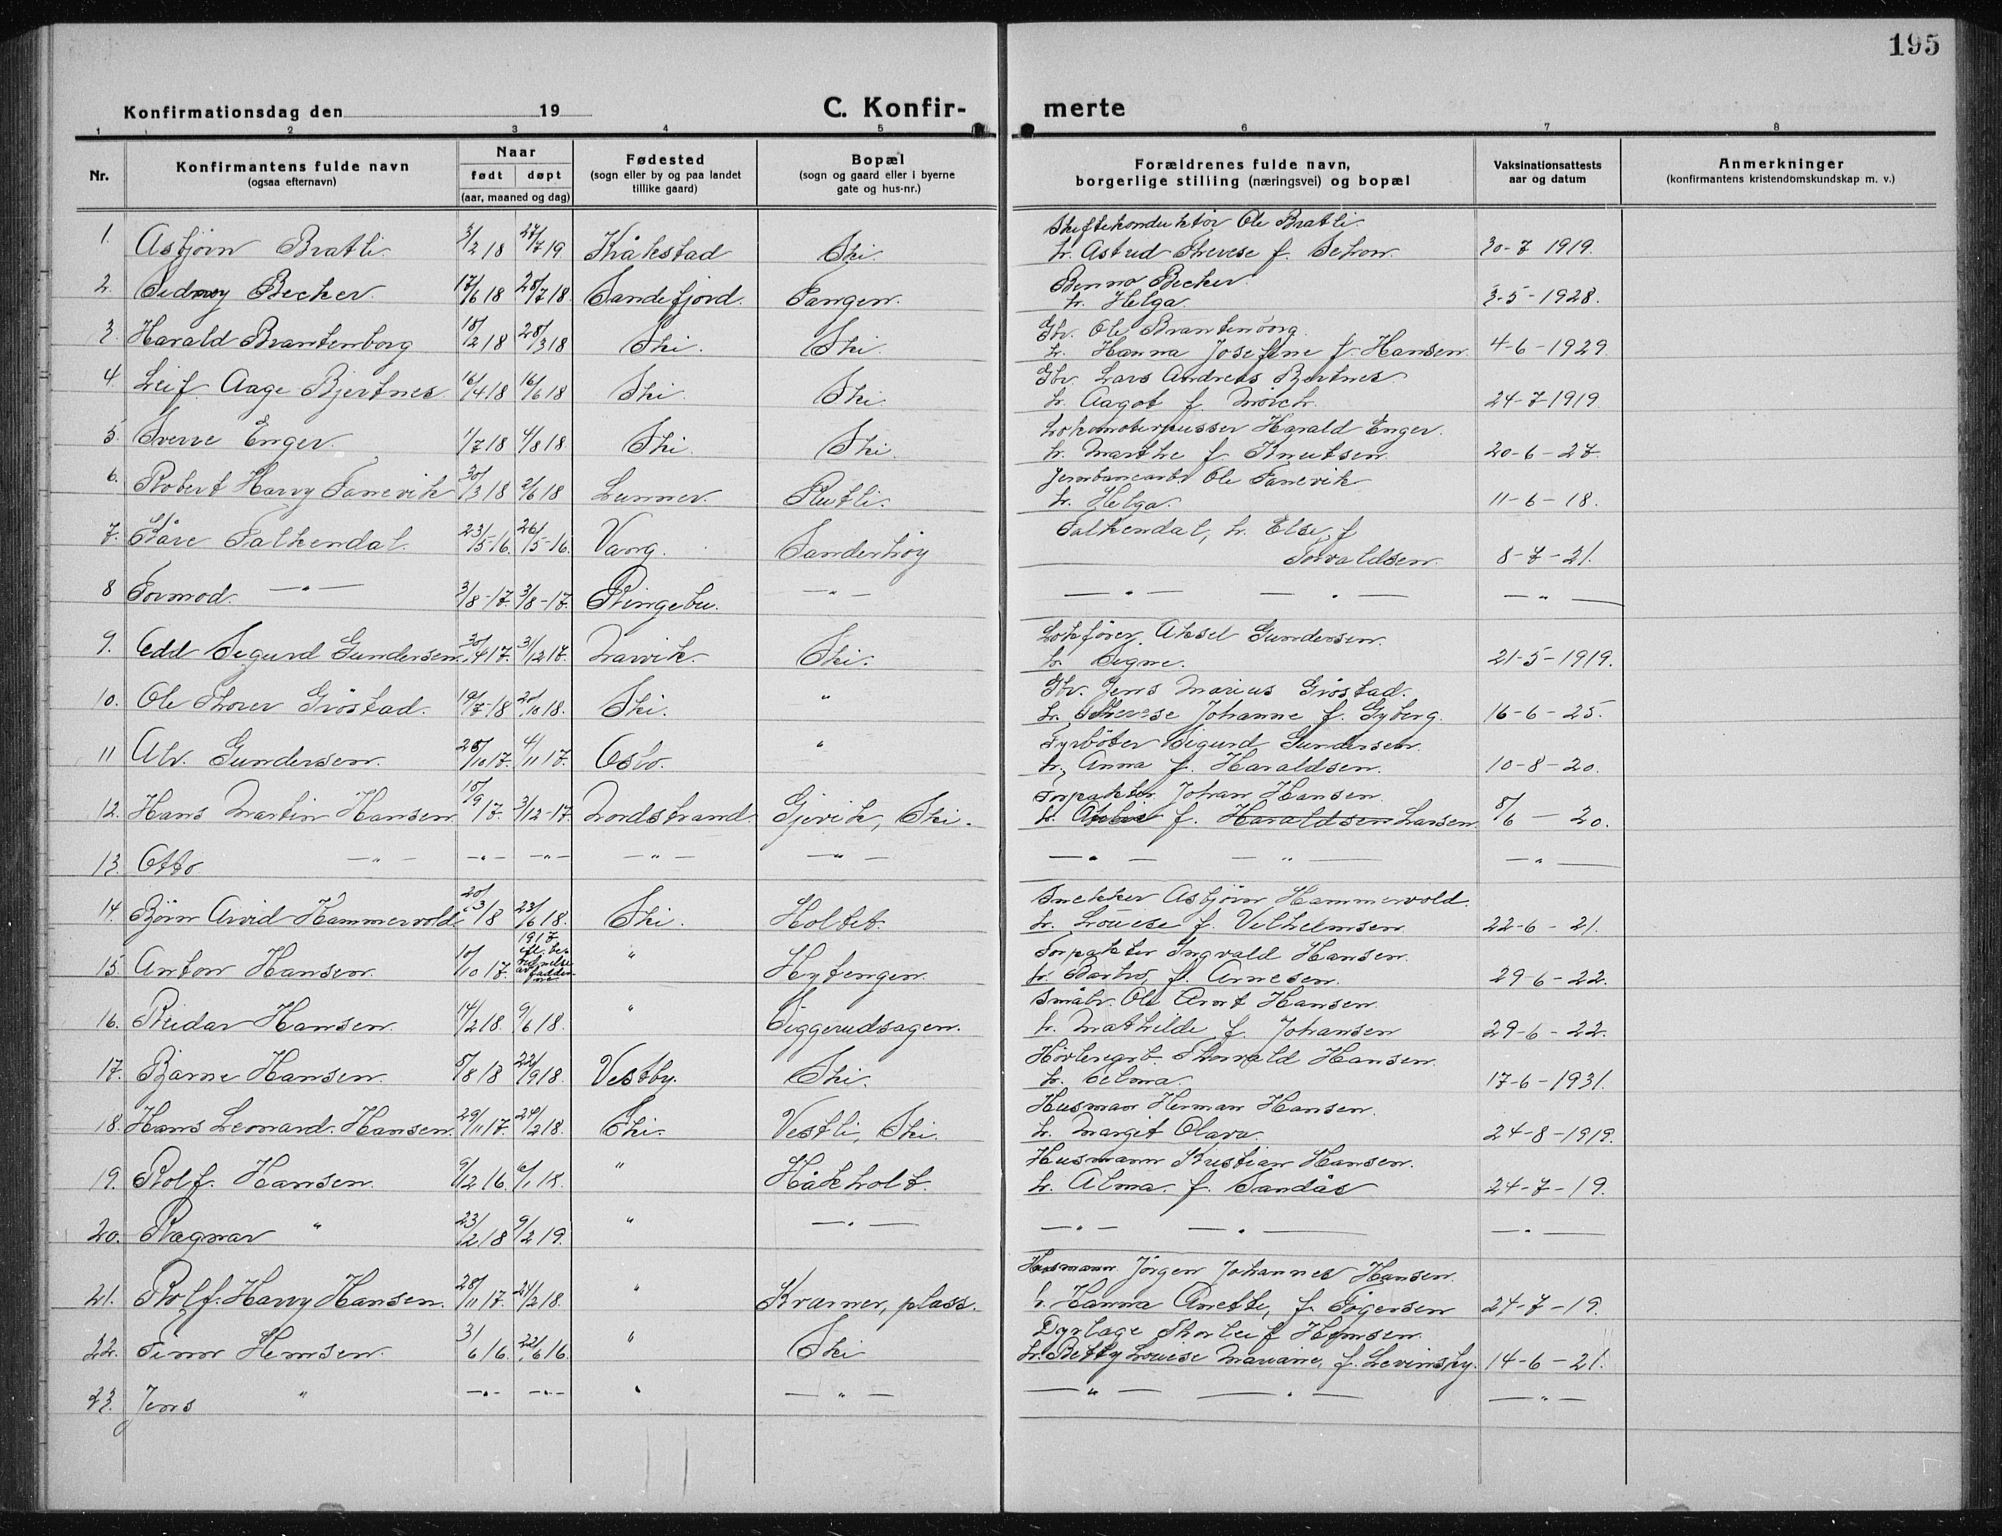 195
Konfirmationsdag den 19 C. Konfir- merte
1 2 3 4 5 6 7 8
Nr. Konfirmantens fulde navn (ogsaa efternavn) Naar født døpt (aar, maaned og dag) Fødested (sogn eller by og paa landet tillike gaard) Bopæl (sogn og gaard eller i byerne gate og hus-nr.) Forældrenes fulde navn, borgerlige stilling (næringsvei) og bopæl Vaksinationsattests aar og datum Anmerkninger (konfirmantens kristendomskundskap m. v.)
Skiftekonduktör Ole Bratli.
1. Asbjörn Bratli 3/2 18 27/7 19 Kråkstad Ski. h. Astrid Therese f. 30-7 1919.
Benno Becker.
2. Sidney Becker. 17/6 18 28/7 18 Sandefjord. Tangen. h. Helga. 3-5-1928.
Gbr. Ole Brantenborg.
3. Harald Brantenborg 18/2 18 28/3 18 Ski. Ski. h. Hanna Josefine f. Hansen. 4-6-1929.
Gbr. Lars Andreas Bjertnes
4. Leif Aage Bjertnes 16/4 18 16/6 18 Ski. Ski. h. Aagot f. Mörch. 24-7-1919.
Lokomotivpusser Harald Enger.
5. Sverre Enger. 1/7 18 4/8 18 Ski. Ski. h. Marthe f. Knutsen. 20-6-27.
Jernbanearb. Ole Fanevik
6. Robert Harry Fanevik 30/3 18 2/6 18 Lunner. Rutli. h. Helga. 11-6-18.
Falkendal, h. Else, f.
7. Kåre Falkendal. 23/5-16. 26/5-16. Vang. Sanderhöy Torvaldsen. 8-7-21.
8 Tormod. — " — 3/8-17. 3/8-17. Ringebu. — " — — " — — " — — " —
Lokförer Aksel Gundersen.
9. Odd Sigurd Gundersen. 30/4 17. 31/12 17. Larvik. Ski. h. Signe. 21-5-1919.
Gbr. Jens Marius Gröstad.
10. Ole Thorer Gröstad. 19/7-18 20/10 18. Ski. " h. Therese Johanne f. Gyberg. 16-6-25.
Fyrböter Sigurd Gundersen.
11 Alv. Gundersen. 28/10 17. 4/11 17. Oslo. " h. Anna f. Haraldsen. 10-8-20.
Forpakter Johan Hansen.
12. Hans Martin Hansen 18/9 17. 3/12-17. Nordstrand. Gjevik, Ski. h. f. Haraldsen Larsen. 8/6-20.
13. Otto — " — — " — — " — — " — — " — — " — — " — — " —
Snekker Asbjörn Hammervold.
14. Björn Arvid Hammervold. 20/3 18 23/6 18. Ski. Holtet. h. Louise f. Vilhelmsen. 22-6-21.
1917 Forpakter Ingvald Hansen.
15. Anton Hansen. 10/10 17. " Hytengen. h. f. Arnesen. 29-6-22.
Småbr. Ole Arnt Hansen.
16. Reidar Hansen. 14/2 18. 9/6 18. " Siggerudsagen. h. Mathilde f. Johansen 29-6-22.
Hövleriarb. Thorvald Hansen.
17. Bjarne Hansen. 8/8 18 22/9 18. Vestby. Ski. h. Selma. 17-6-1931.
Husmann Herman Hansen.
18. Hans Leonard. Hansen. 29/11 17. 24/2 18. Ski. Vestli, Ski. h. Margit Olava. 24-8-1919.
Husmann Kristian Hansen.
19. Rolf. Hansen. 9/12 16 6/1 18. " Håkholt. h. Alma. f. Sandås 24-7-19.
20. Ragnar " 23/12 18 9/2 19. " — " — — " — — " — — " —
Husmann Jörgen Johannes Hansen.
21. Rolf. Harry Hansen. 28/11 17. 24/2 18. " Kramer, plass. h. Hanna Anette, f. 24-7-19.
Dyrlæge Thorleif Hemsen.
22. Finn Hemsen. 3/6 16. 22/6 16. " Ski h. Betty Louise Mariane, f. Levinsky. 14-6-21.
23. Jens " — " — — " — " — " — — " — — " — — " —